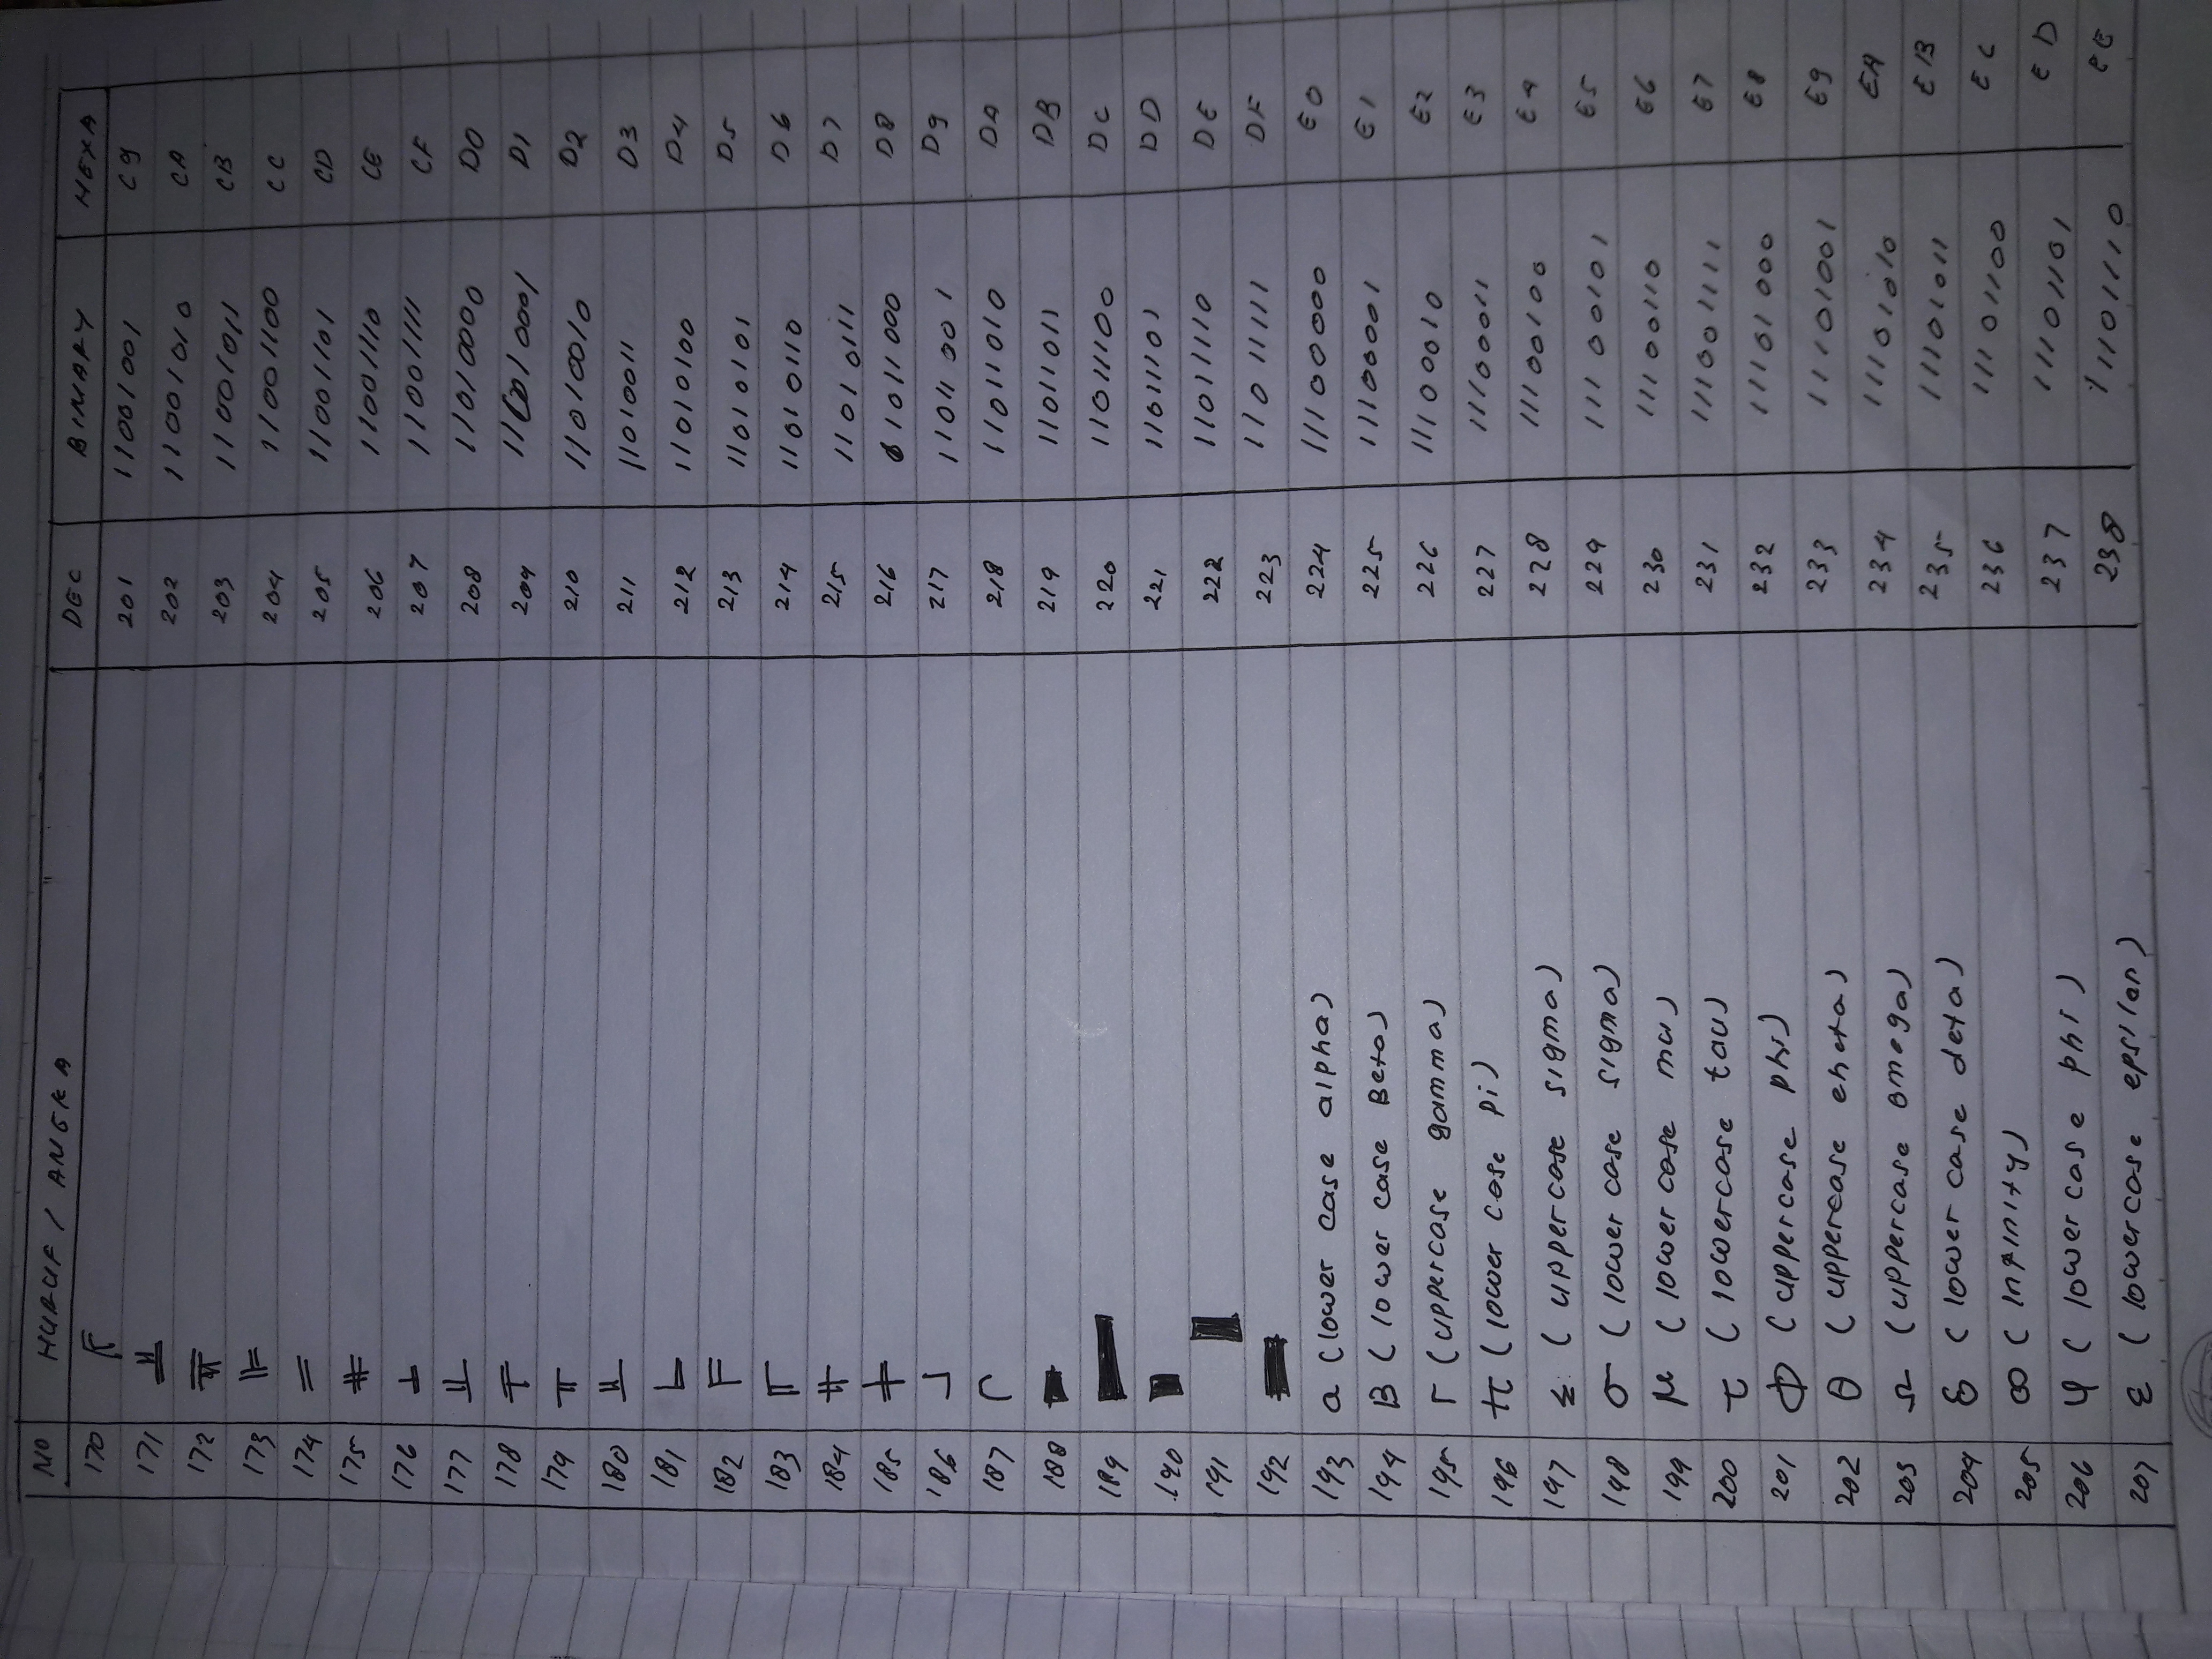 NO HURUF / ANGKA DEC BINARY HEXA
170 ╔ 201 11001001 C9
171 ╩ 202 11001010 CA
172 ╦ 203 11001011 CB
173 ╠ 204 11001100 CC
174 = 205 11001101 CD
175 ╬ 206 11001110 CE
176 ╧ 207 11001111 CF
177 ╨ 208 11010000 D0
178 ╤ 209 11010001 D1
179 ╥ 210 11010010 D2
180 ╙ 211 11010011 D3
181 ╘ 212 11010100 D4
182 ╒ 213 11010101 D5
183 ╓ 214 11010110 D6
184 ╫ 215 11010111 D7
185 ╪ 216 11011000 D8
186 ┘ 217 11011001 D9
187 ┌ 218 11011010 DA
188 █ 219 11011011 DB
189 ▄ 220 11011100 DC
190 ▌ 221 11011101 DD
191 ▐ 222 11011110 DE
192 ▀ 223 11011111 DF
193 a (lower case alpha) 224 11100000 E0
194 B (lower case Beta) 225 11100001 E1
195 Γ (uppercase gamma) 226 11100010 E2
196 π (lower case pi) 227 11100011 E3
197 Σ (uppercase sigma) 228 11100100 E4
198 σ (lower case sigma) 229 11100101 E5
199 μ (lower case mu) 230 11100110 E6
200 τ (lowercase tau) 231 11100111 E7
201 Φ (uppercase phi) 232 11101000 E8
202 θ (uppercase eheta) 233 11101001 E9
203 Ω (uppercase omega) 234 11101010 EA
204 δ (lower case deta) 235 11101011 EB
205 ∞ (infinity) 236 11101100 EC
206 φ (lower case phi) 237 11101101 ED
207 ε (lowercase epsilan) 238 11101110 EE